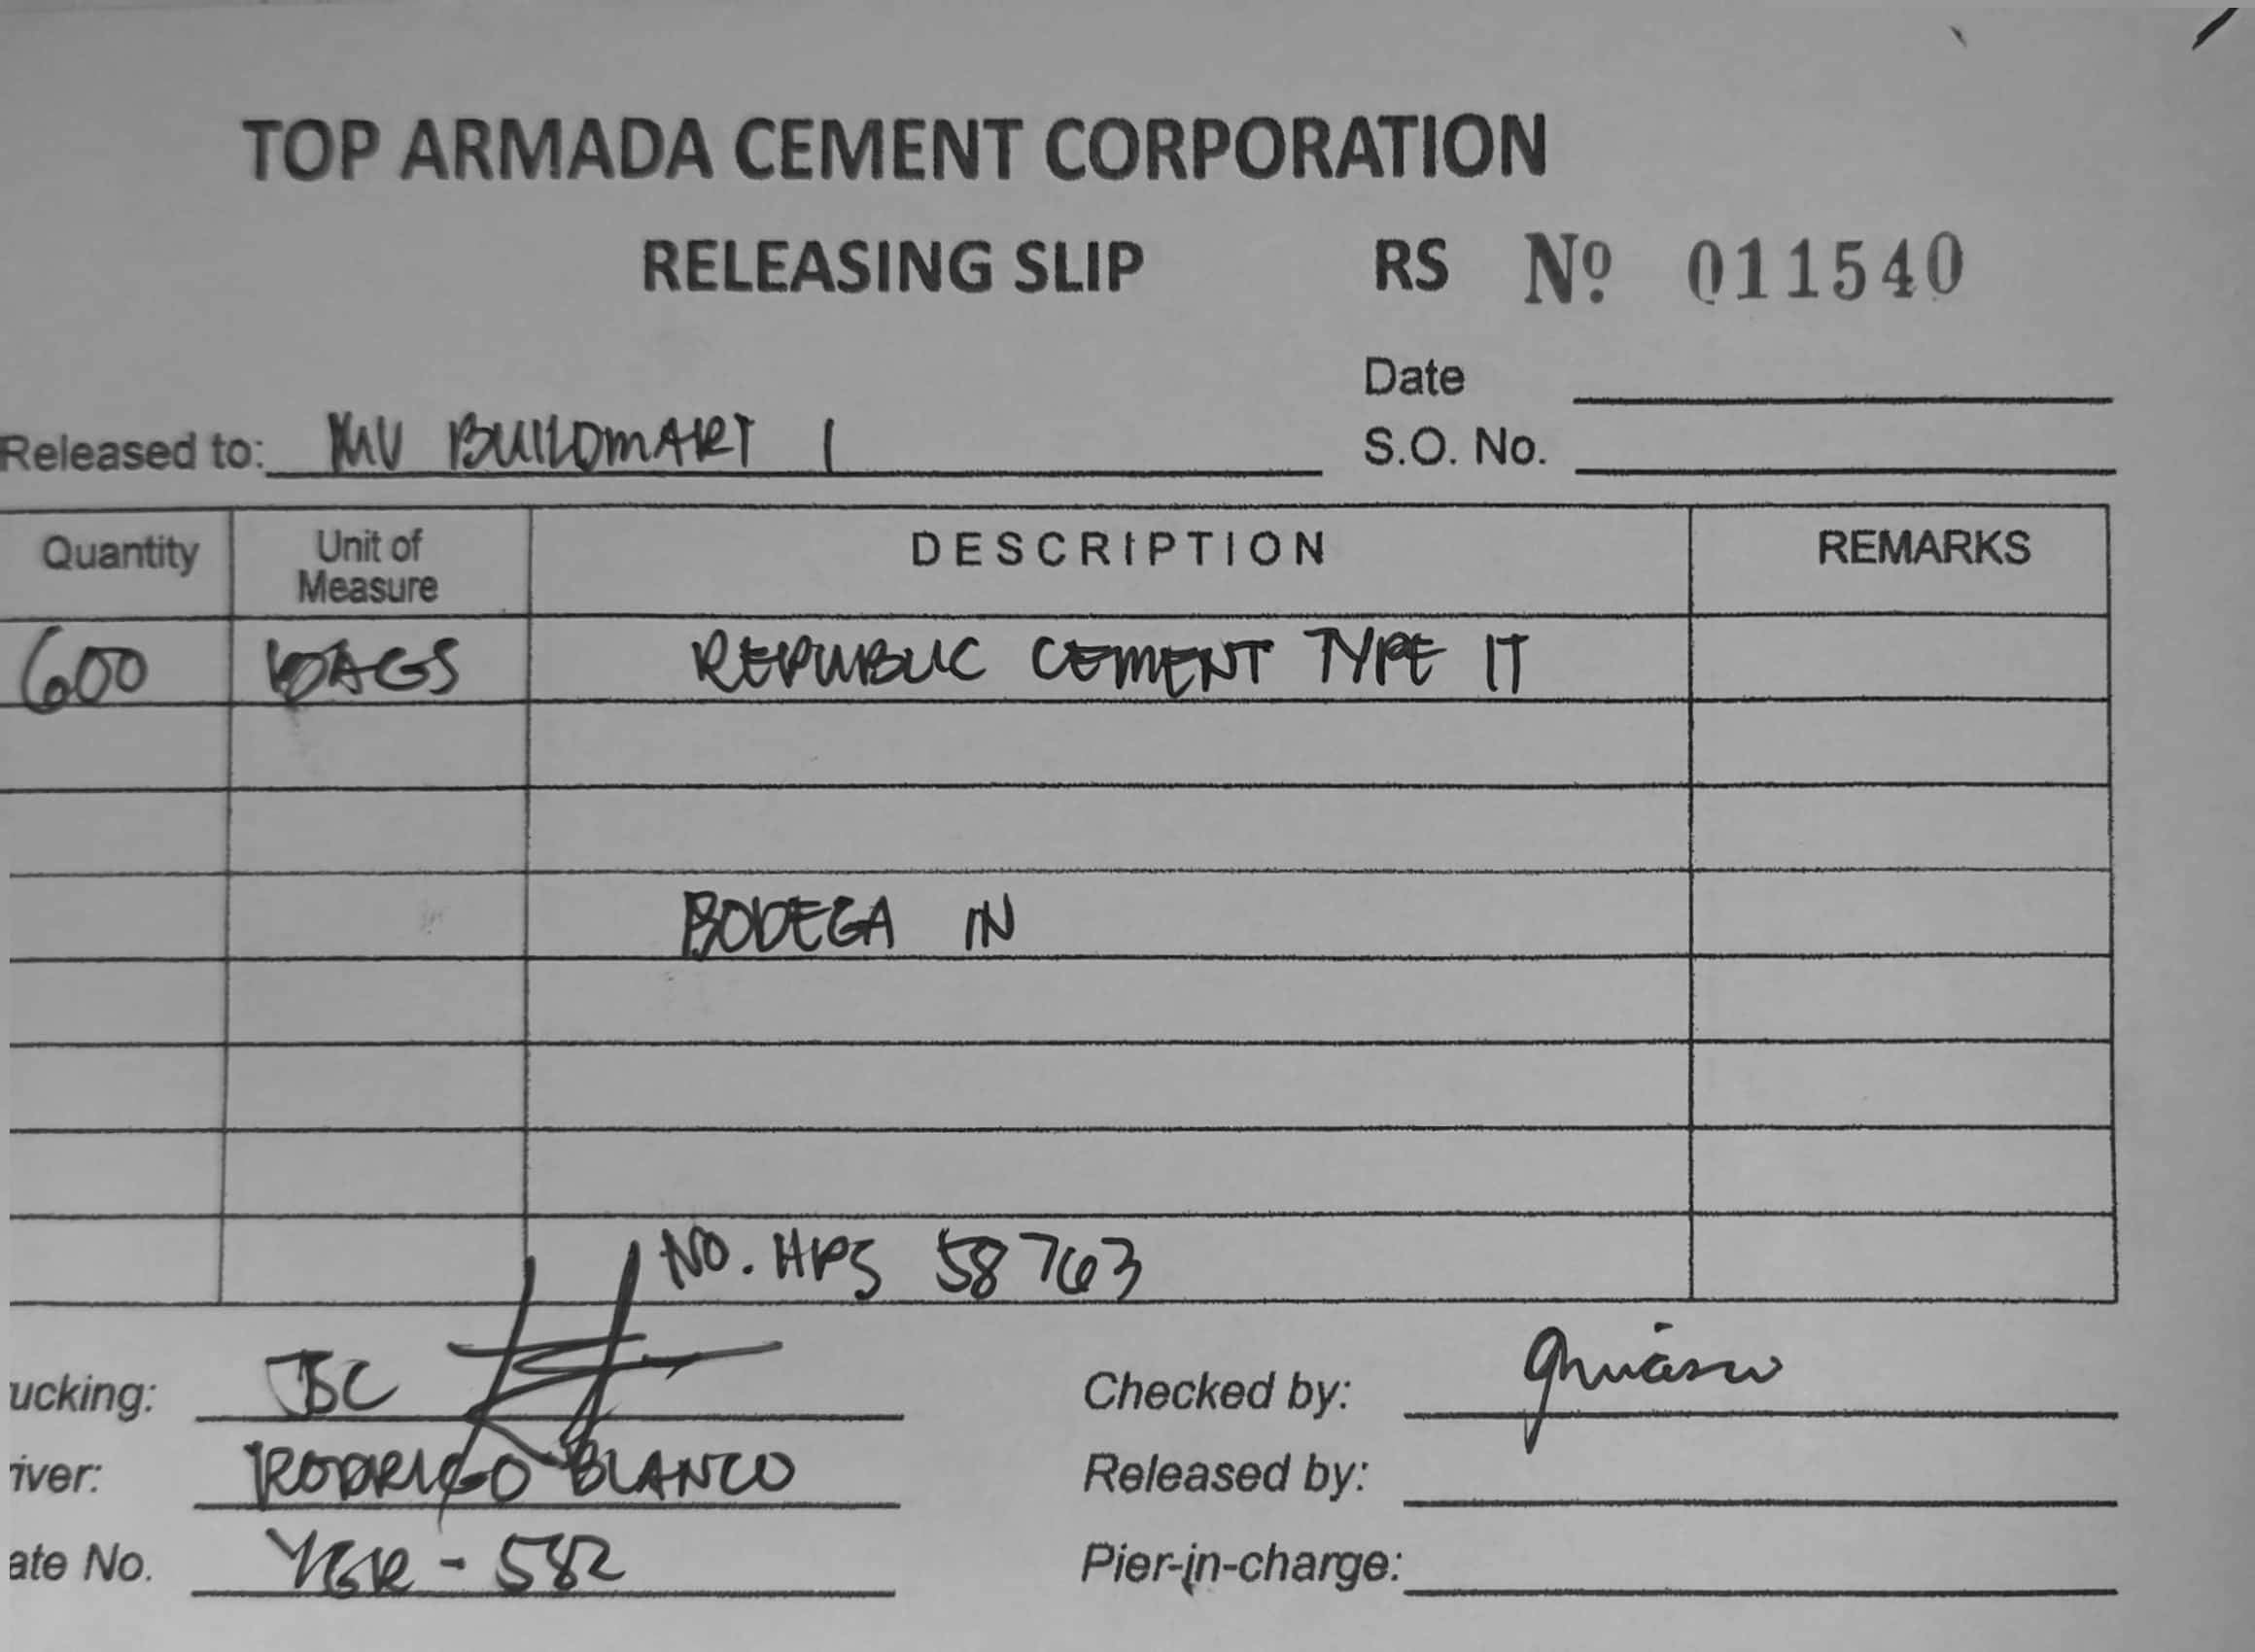 TOP ARMADA CEMENT CORPORATION
RELEASING SLIP RS Nº 011540
Date
Released to: MV BUILDMART 1 S.O. No.
Quantity Unit of Measure DESCRIPTION REMARKS
600 BAGS REPUBLIC CEMENT TYPE 1T
BODEGA IN
NO. HPS 58763
ucking: JBC Checked by:
iver: RODRIGO BLANCO Released by:
ate No. YGR - 582 Pier-in-charge: